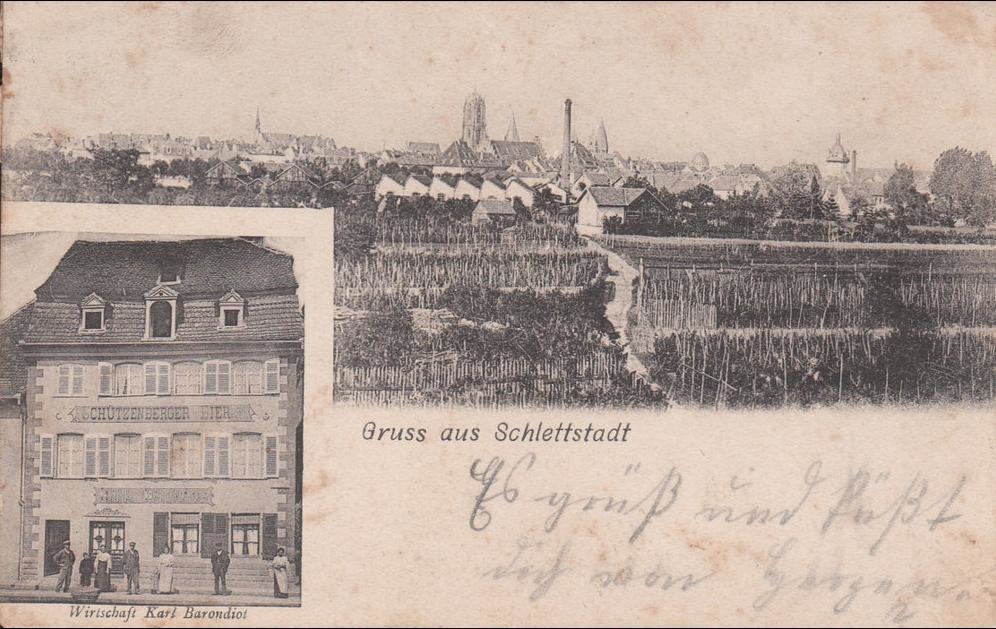 SCHÜTZENBERGER BIER
Gruss aus Schlettstadt
Es grüßt und küßt
dich von Herzen
Wirtschaft Karl Barondiot